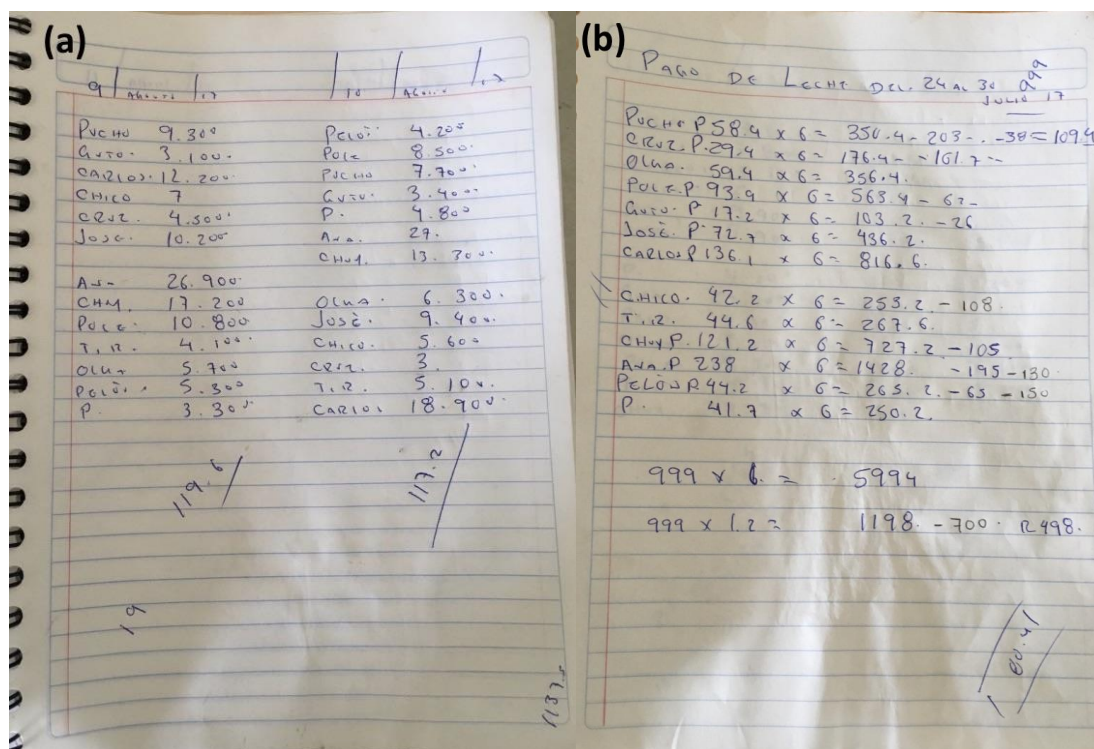 (a)
9 / Agosto / 17
Pucho 9.300
Guto. 3.100.
Carlos. 12.200.
Chico 7
Cruz. 4.500.
José. 10.200
Ana 26.900.
CHM. 17.200
Pole. 10.800
T.R. 4.100
Olga 5.700
Pelón. 5.300
P. 3.300
119.6
19
10 / Agosto / 17
Pelón. 4.200
Pole 8.500.
Pucho 7.700
Guto. 3.400.
P. 4.800
Ana. 27.
CHM. 13.300.
Olga. 6.300.
José. 9.400.
Chico. 5.600
Cruz. 3.
T.R. 5.100.
Carlos 18.900.
117.2
(b)
Pago de Leche del 24 al 30
Julio 17
999
Pucho P 58.4 x 6= 350.4 - 203 - - 38 = 109.4
Cruz. P. 29.4 x 6= 176.4 - - 161.7 -
Olga. 59.4 x 6= 356.4.
Pole. P 93.9 x 6= 563.4 - 62 -
Guto. P 17.2 x 6= 103.2. - 26
José. P 72.7 x 6= 436.2.
Carlos P 136.1 x 6= 816.6.
Chico. 42.2 x 6= 253.2 - 108.
T.R. 44.6 x 6= 267.6.
CHM P 121.2 x 6= 727.2 - 105
Ana. P 238 x 6= 1428. - 195 - 130
Pelón P 44.2 x 6= 265.2. - 65 - 150
P. 41.7 x 6= 250.2.
999 x 6. = 5994
999 x 1.2 = 1198. - 700. R 498.